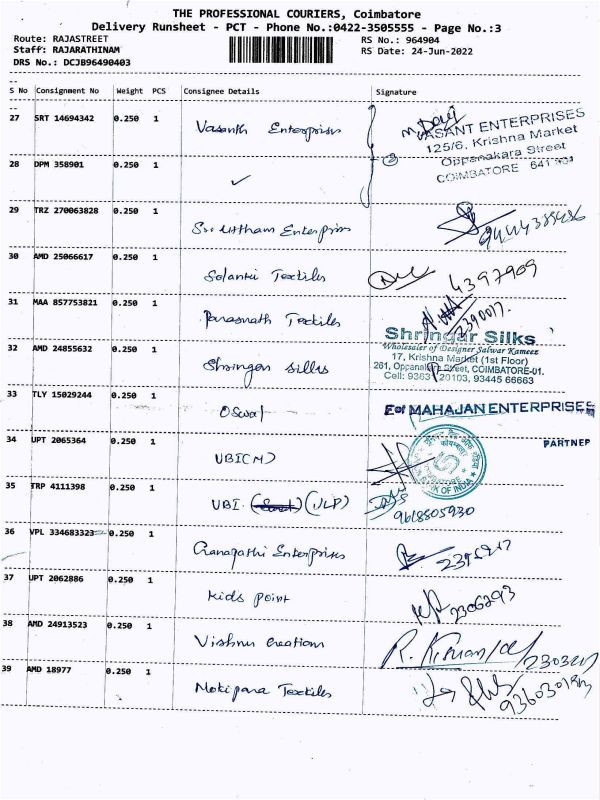 THE PROFESSIONAL COURIERS, Coimbatore
Delivery Runsheet - PCT - Phone No.:0422-3505555 - Page No.:3
Route: RAJASTREET RS No.: 964904
Staff: RAJARATHINAM RS Date: 24-Jun-2022
DRS No.: DCJB96490403
S No Consignment No Weight PCS Consignee Details Signature
27 SRT 14694342 0.250 1 Vasanth Enterprises
VASANT ENTERPRISES
125/6, Krishna Market
Oppanakara Street
COIMBATORE 641 001
28 DPM 358901 0.250 1 ✓
29 TRZ 270063828 0.250 1 Sri Uttham Enterprises
30 AMD 25066617 0.250 1 Solanki Textiles 4397909
31 MAA 857753821 0.250 1 Parasnath Textiles
Shringar Silks
Wholesaler of Designer Salwar Kameez
17, Krishna Market (1st Floor)
261, Oppanakara Street, COIMBATORE-01.
Cell: 9363 20103, 93445 66663
32 AMD 24855632 0.250 1 Shringar silks
33 TLY 15029244 0.250 1 Oswal For MAHAJAN ENTERPRISES
PARTNER
34 UPT 2065364 0.250 1 UBI(M)
BANK OF INDIA
35 TRP 4111398 0.250 1 UBI (ULP) 9618805930
36 VPL 334683323 0.250 1 Ganapathi Enterprises
37 UPT 2062886 0.250 1 Kids point 2306293
38 AMD 24913523 0.250 1 Vishnu Creations
39 AMD 18977 0.250 1 Textiles